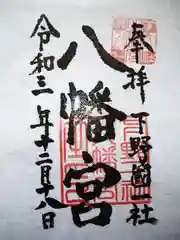 奉拝 下野國一社
八幡宮
令和三年十二月十八日